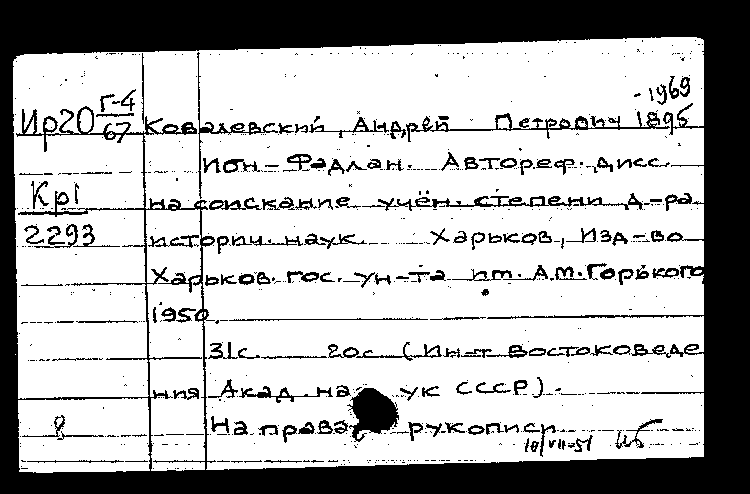 -1969
Ир20 Г-4/67 Ковалевский, Андрей Петрович 1895
Ибн-Фадлан. Автореф. дисс.
Кр1 на соискание учён. степени д-ра
2293 историч. наук. Харьков, Изд-во
Харьков. гос. ун-та им. А.М.Горького,
1950.
31с. 20с (Ин-т востоковеде
ния Акад. наук СССР).
8 На правах рукописи
10/VII-51